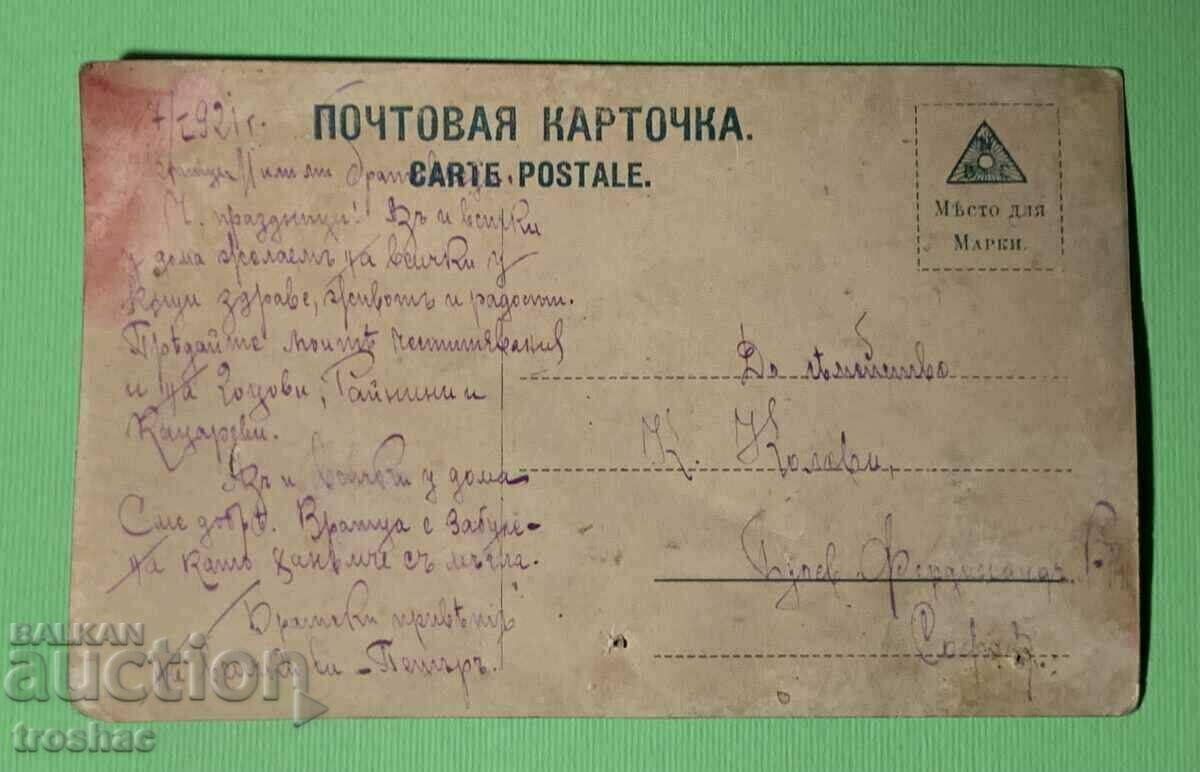 7/I 921 г.
ПОЧТОВАЯ КАРТОЧКА.
CARTE POSTALE.
Мѣсто для
Марки.
Враца Мили
Ч. праздници! Азъ и всички
у дома желаемъ на всички у
кѫщи здраве, животъ и радости.
Прѣдайте моитѣ честитявания
и на Гоцови, Райнини и
Кацарови.
Азъ и всички у дома
сме добрѣ. Вратца е забуле-
на като ханѫмче съ мъгла.
Братски привѣтъ
ви - Петъръ.
До сѣмейство
К. Колови,
Булев. Фердинандъ
София
BALKAN
auction
troshac